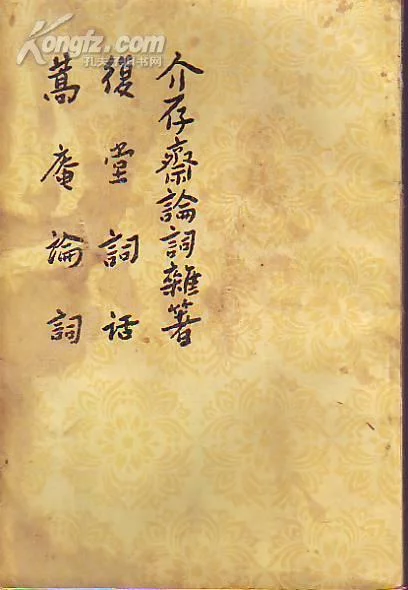 介存齋論詞雜箸
復堂詞话
蒿庵論詞
Kongfz.com
孔夫子旧书网